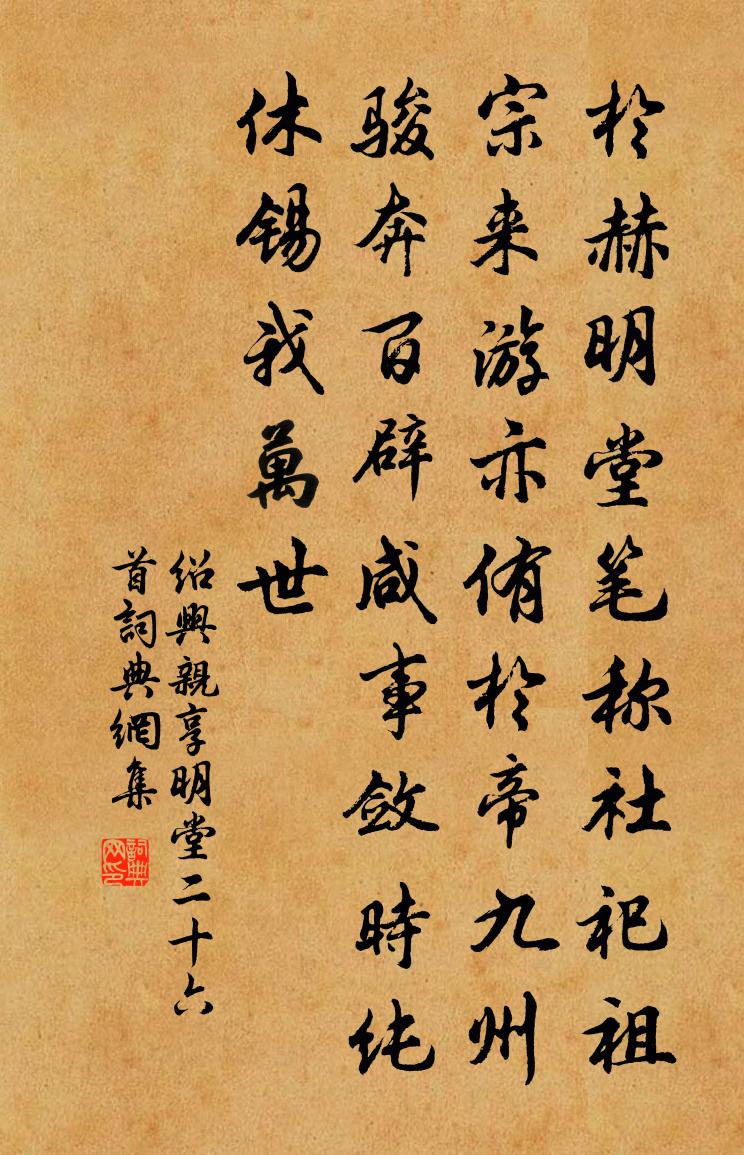 於赫明堂笔称社祀祖
宗来游亦侑於帝九州
骏奔百辟咸事敛時纯
休锡我萬世
绍興親享明堂二十六
首詞典網集
詞典
网印